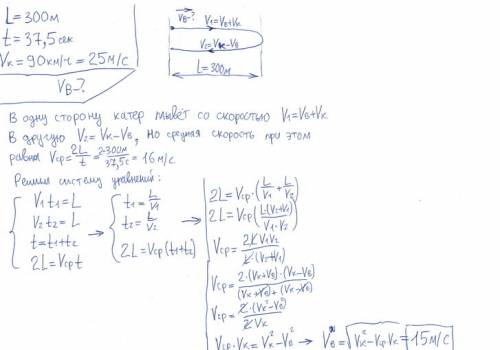 L = 300м
t = 37,5 сек
Vк = 90км/ч = 25м/с
Vв - ?
Vв-? V₁=Vв+Vк
V₂=Vк-Vв
L=300м
В одну сторону катер плывёт со скоростью V₁=Vв+Vк
В другую V₂=Vк-Vв, Но средняя скорость при этом
равна Vср=2L/t=2·300м/37,5с=16м/с
Решим систему уравнений:
V₁t₁=L
V₂t₂=L
t=t₁+t₂
2L=Vср t
t₁=L/V₁
t₂=L/V₂
2L=Vср(t₁+t₂)
2L=Vср·(L/V₁+L/V₂)
2L=Vср(L(V₂+V₁)/V₁·V₂)
Vср=2LV₁V₂/L·(V₂+V₁)
Vср=2·(Vк+Vв)·(Vк-Vв)/(Vк+Vв)+(Vк-Vв)
Vср=2·(Vк²-Vв²)/2Vк
Vср·Vк=Vк²-Vв² → Vв=√Vк²-VсрVк=15м/с